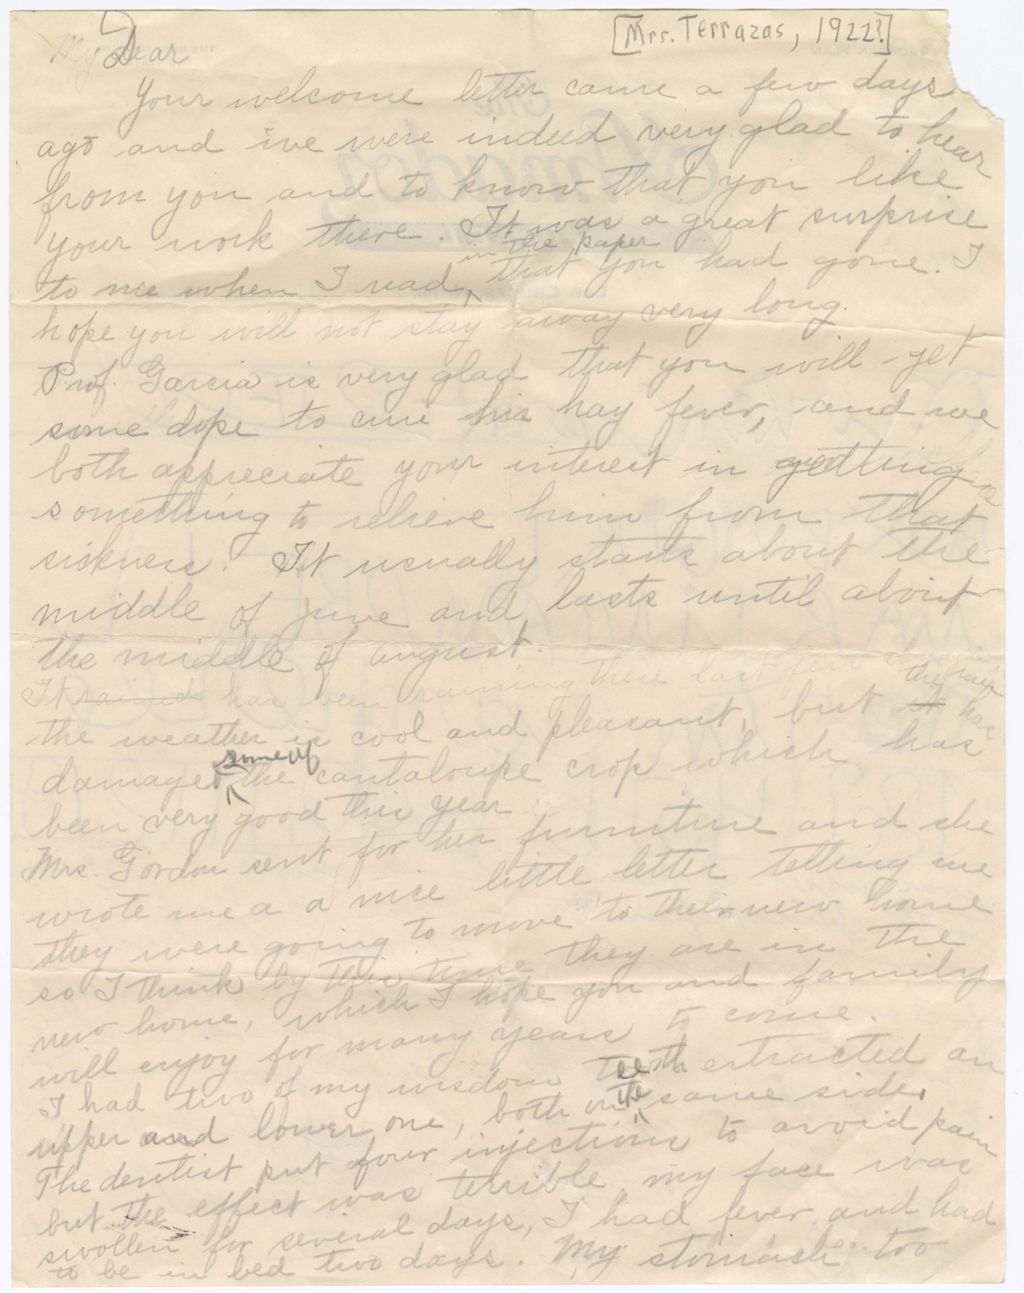 [Mrs. Terrazas, 1922?]
My Dear
Your welcome letter came a few days
ago and ive were indeed very glad to hear
from you and to know that you like
your work there. It was a great surprise
in the paper
to me when I read, that you had gone. I
hope you will not stay away very long.
Prof. Garcia is very glad that you will get
some dope to cure his hay fever, and we
both appreciate your interest in getting
something to relieve him from that
sickness. It usually starts about the
middle of June and lasts until about
the middle of august.
It rained has been raining these last few
the weather is cool and pleasant, but it the rain has
damaged some of the cantaloupe crop which has
been very good this year.
Mrs. Gordon sent for her furniture and she
wrote me a a nice little letter telling me
they were going to move to their new home
so I think by this time they are in the
new home, which I hope you and family
will enjoy for many years to come.
I had two of my wisdom teeth extracted an
upper and lower one, both on the same side.
The dentist put four injections to avoid pain
but the effect was terrible my face was
swollen for several days, I had fever and had
to be in bed two days. My stomach too